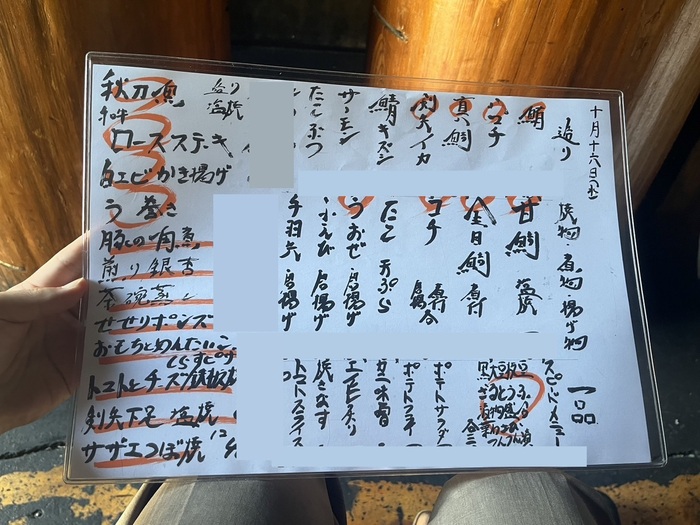 十月十六日(水)
造り
鯛
コチ
真鯛
剣先イカ
鯖キズシ
サーモン
たこぶつ
焼物・煮物・揚げ物
甘鯛 塩焼
金目鯛 煮付
コチ
たこ 天ぷら
うおぜ 唐揚げ
小えび 唐揚げ
手羽先 唐揚げ
一品
スピードメニュー
黒豆枝豆
ポテトサラダ
ポテトフライ
エビチリ
焼きなす
トマトスライス
秋刀魚
造り
塩焼
和牛
ロースステーキ
白エビかき揚げ
う巻き
豚の角煮
煎り銀杏
茶碗蒸し
せせりポンズ
おもちとめんたいこ
トマトとチーズ
剣先下足 塩焼
サザエつぼ焼